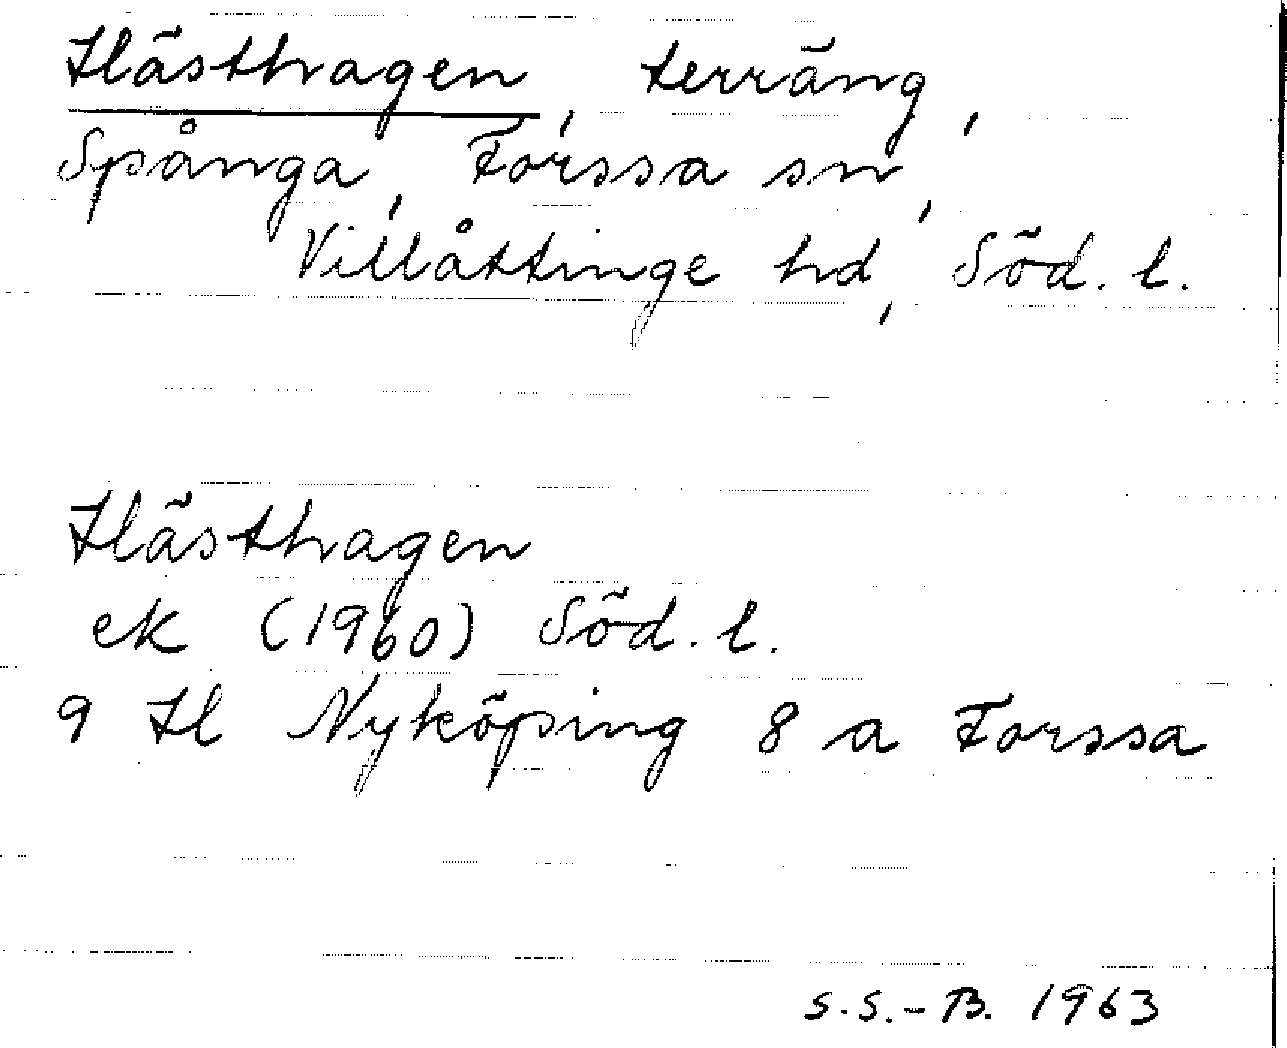 Hästhagen, terräng,
Spånga, Forssa sn,
Villåttinge hd, Söd. l.
Hästhagen
ek (1960) Söd. l.
9 H Nyköping 8 a Forssa
S.S.-B. 1963